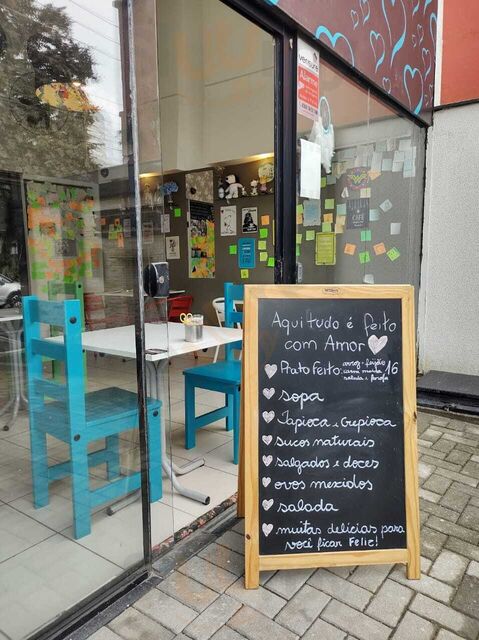 Aqui tudo é feito
com Amor
Prato Feito: arroz - feijão 16
carne moída
salada e farofa
sopa
Tapioca e Crepioca
sucos naturais
salgados e doces
ovos mexidos
salada
muitas delicias para
você ficar Feliz!
versure
Alarme
CAFÉ